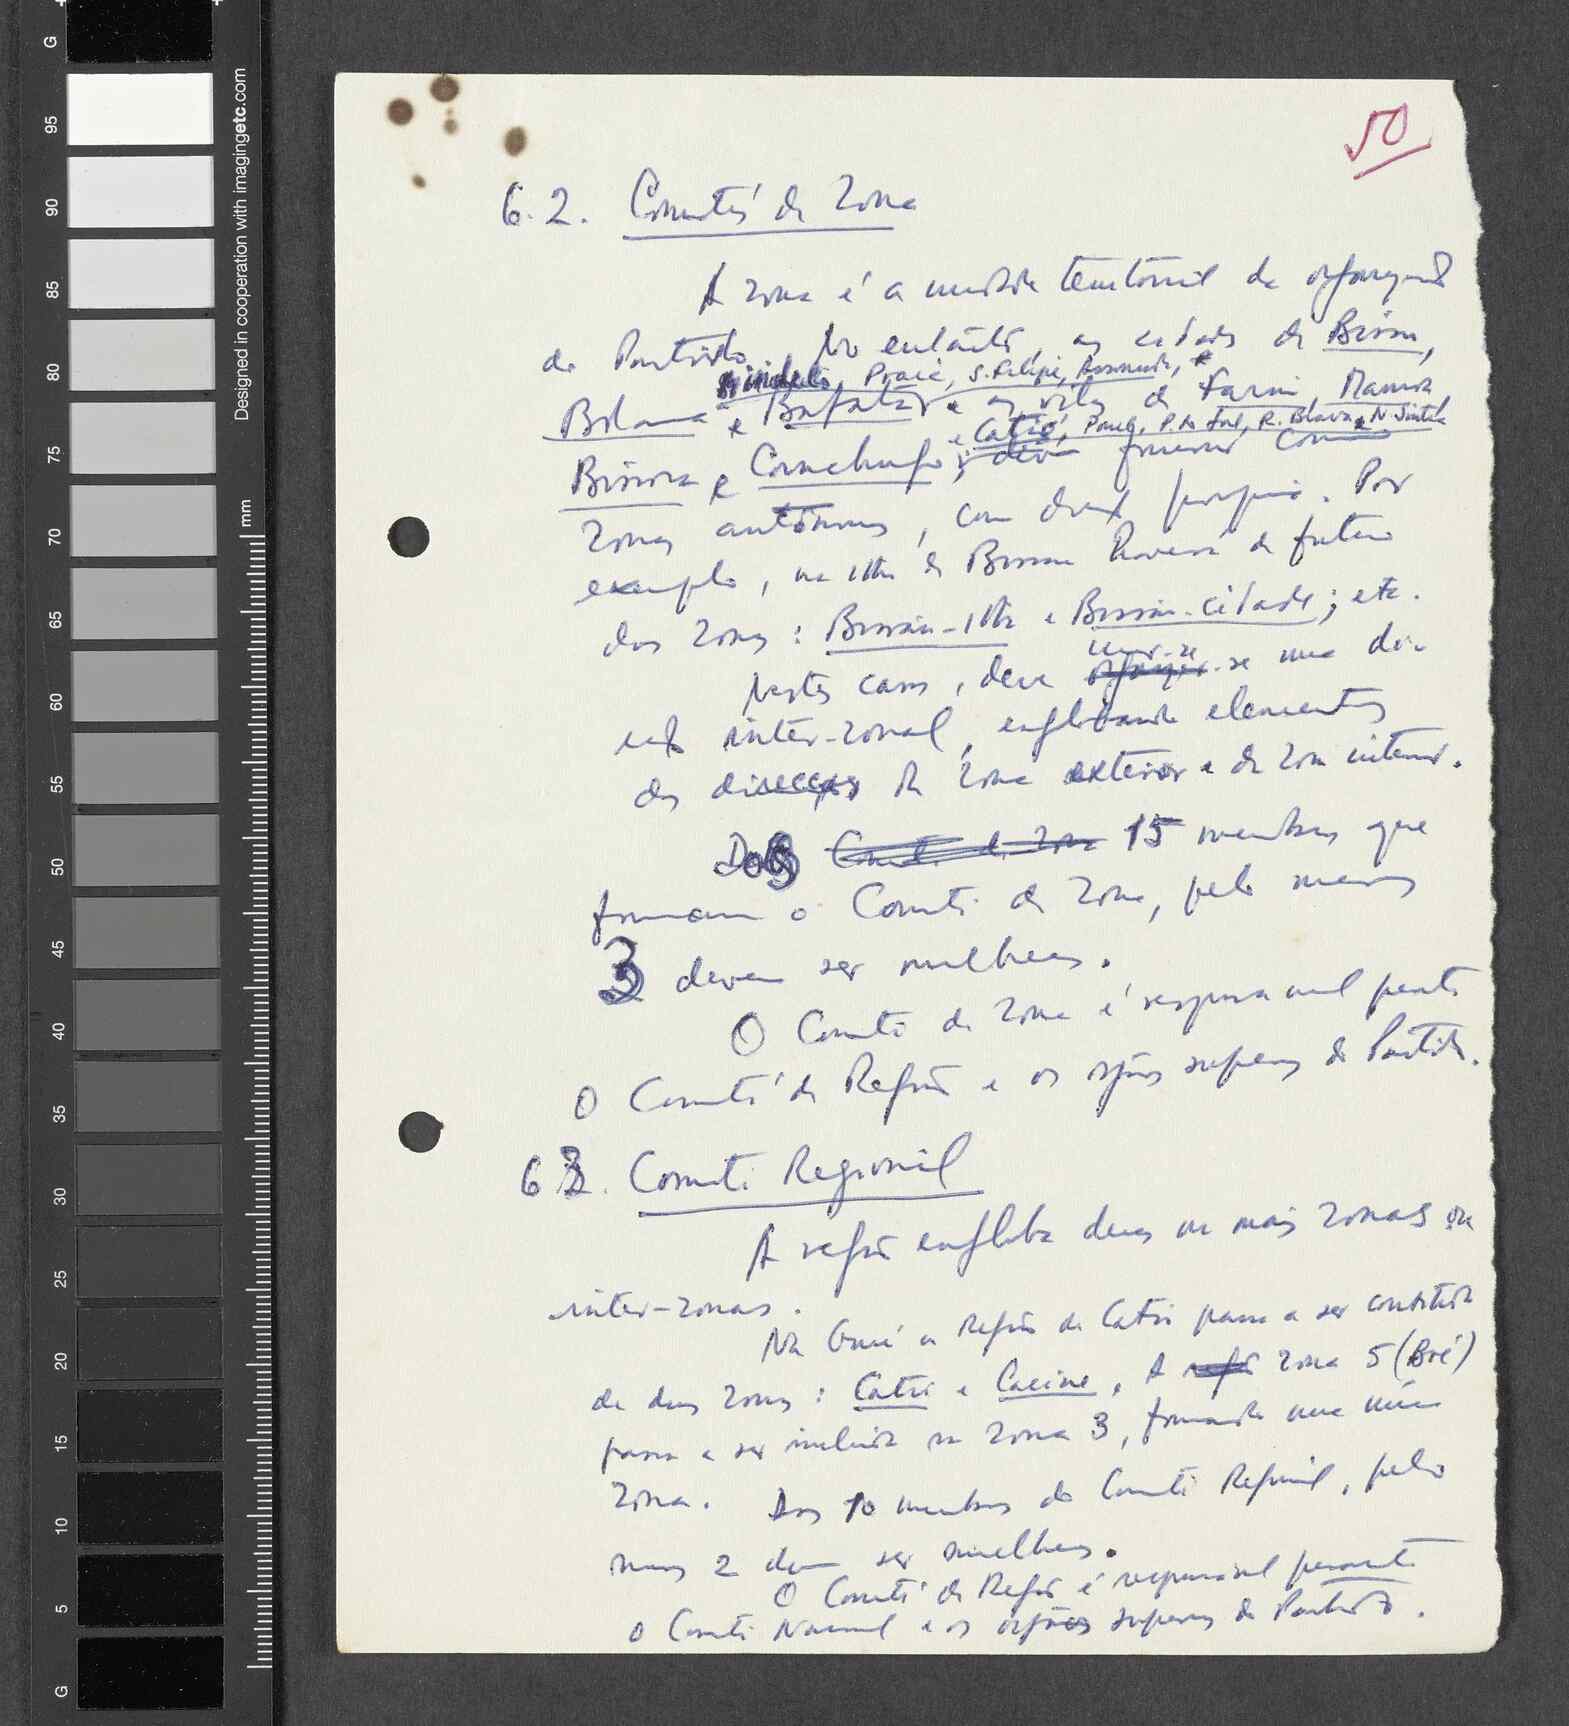 50
6.2. Comités de Zona
A zona é a unidade territorial da organização
do Partido. No entanto, as cidades de Bissau,
Mindelo, Praia, S. Filipe, Assomada, e
Bolama e Bafatá e as vilas de Farim, Mansoa
e Catió,
Bissorã e Canchungo, devem funcionar como
zonas autónomas, com direcção própria. Por
exemplo, na ilha de Bissau haverá de futuro
duas zonas: Bissau-Ilha e Bissau-cidade; etc.
criar-se
Nestes casos, deve organizar-se uma direc
ção inter-zonal, englobando elementos
das direcções da zona exterior e da zona interior.
Dos Comité de Zona 15 membros que
formam o Comité de Zona, pelo menos
3 devem ser mulheres.
O Comité de Zona é responsável perante
o Comité de Região e os órgãos superiores do Partido.
63. Comité Regional
A região engloba duas ou mais zonas ou
inter-zonas.
Na Guiné a Região de Catió passa a ser constituída
de duas zonas: Catió e Cacine. A região zona 5 (Boé)
passa a ser incluída na zona 3, formando uma única
zona. Dos 10 membros do Comité Regional, pelo
menos 2 devem ser mulheres.
O Comité de Região é responsável perante
o Comité Nacional e os órgãos superiores do Partido.
Designed in cooperation with imagingetc.com
mm
G
95
90
85
80
75
70
65
60
55
50
45
40
35
30
25
20
15
10
5
G